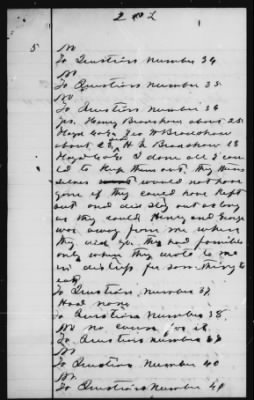 5
No
To Question Number 34
No
To Question Number 35
No
To Question Number 36
yes. Henry Bradshaw about 25
Floyd Co Ga Geo W Bradshaw
about 23 and H. L. Bradshaw 18
Floyd Co Ga I done all I coul
ed to keep them out, they them
selves would not have
gone if they could have kept
out and did stay out as long
as they could Henry and George
was away from me where
they did go they had families
only when they wrote to me
in distress for something to
eat
To Question Number 37
Had none
To Question Number 38.
No no cause for it
To Question Number 39
No
To Question Number 40
No.
To Question Number 41